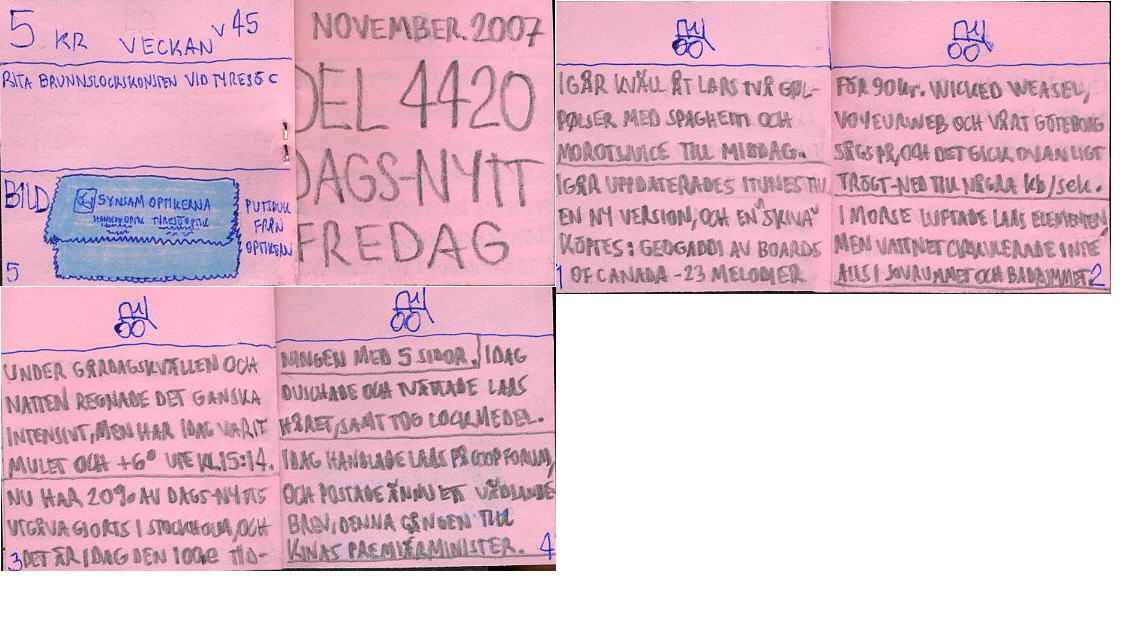 5 KR VECKAN V45
RITA BRUNNSLOCKSKONSTEN VID TYRESÖ C
BILD
SYNSAM OPTIKERNA
TYRESÖ OPTIK
PUTSDUK
FRÅN
OPTIKERN
5
NOVEMBER. 2007
DEL 4420
DAGS-NYTT
FREDAG
IGÅR KVÄLL ÅT LARS TVÅ GØL-
PØLSER MED SPAGHETTI OCH
MOROTSJUICE TILL MIDDAG.
IGÅR UPPDATERADES ITUNES TILL
EN NY VERSION, OCH EN "SKIVA"
KÖPTES: GEOGADDI AV BOARDS
OF CANADA - 23 MELODIER
1
FÖR 90kr. WICKED WEASEL,
VOYEURWEB OCH VÅRT GÖTEBORG
SÅGS PÅ, OCH DET GICK OVANLIGT
TRÖGT-NED TILL NÅGRA kb/sek.
I MORSE LUFTADE LARS ELEMENTEN,
MEN VATTNET CIRKULERADE INTE
ALLS I SOVRUMMET OCH BADRUMMET.
2
UNDER GÅRDAGSKVÄLLEN OCH
NATTEN REGNADE DET GANSKA
INTENSIVT, MEN HAR IDAG VARIT
MULET OCH +6° UTE KL.15:14.
NU HAR 20% AV DAGS-NYTTS
UTGÅVA GJORTS I STOCKHOLM, OCH
DET ÄR IDAG DEN 100:e TID-
3
NINGEN MED 5 SIDOR. IDAG
DUSCHADE OCH TVÄTTADE LARS
HÅRET, SAMT TOG LOCKMEDEL.
IDAG HANDLADE LARS PÅ COOP FORUM,
OCH POSTADE ÄNNU ETT VÄDJANDE
BREV, DENNA GÅNGEN TILL
KINAS PREMIÄRMINISTER.
4